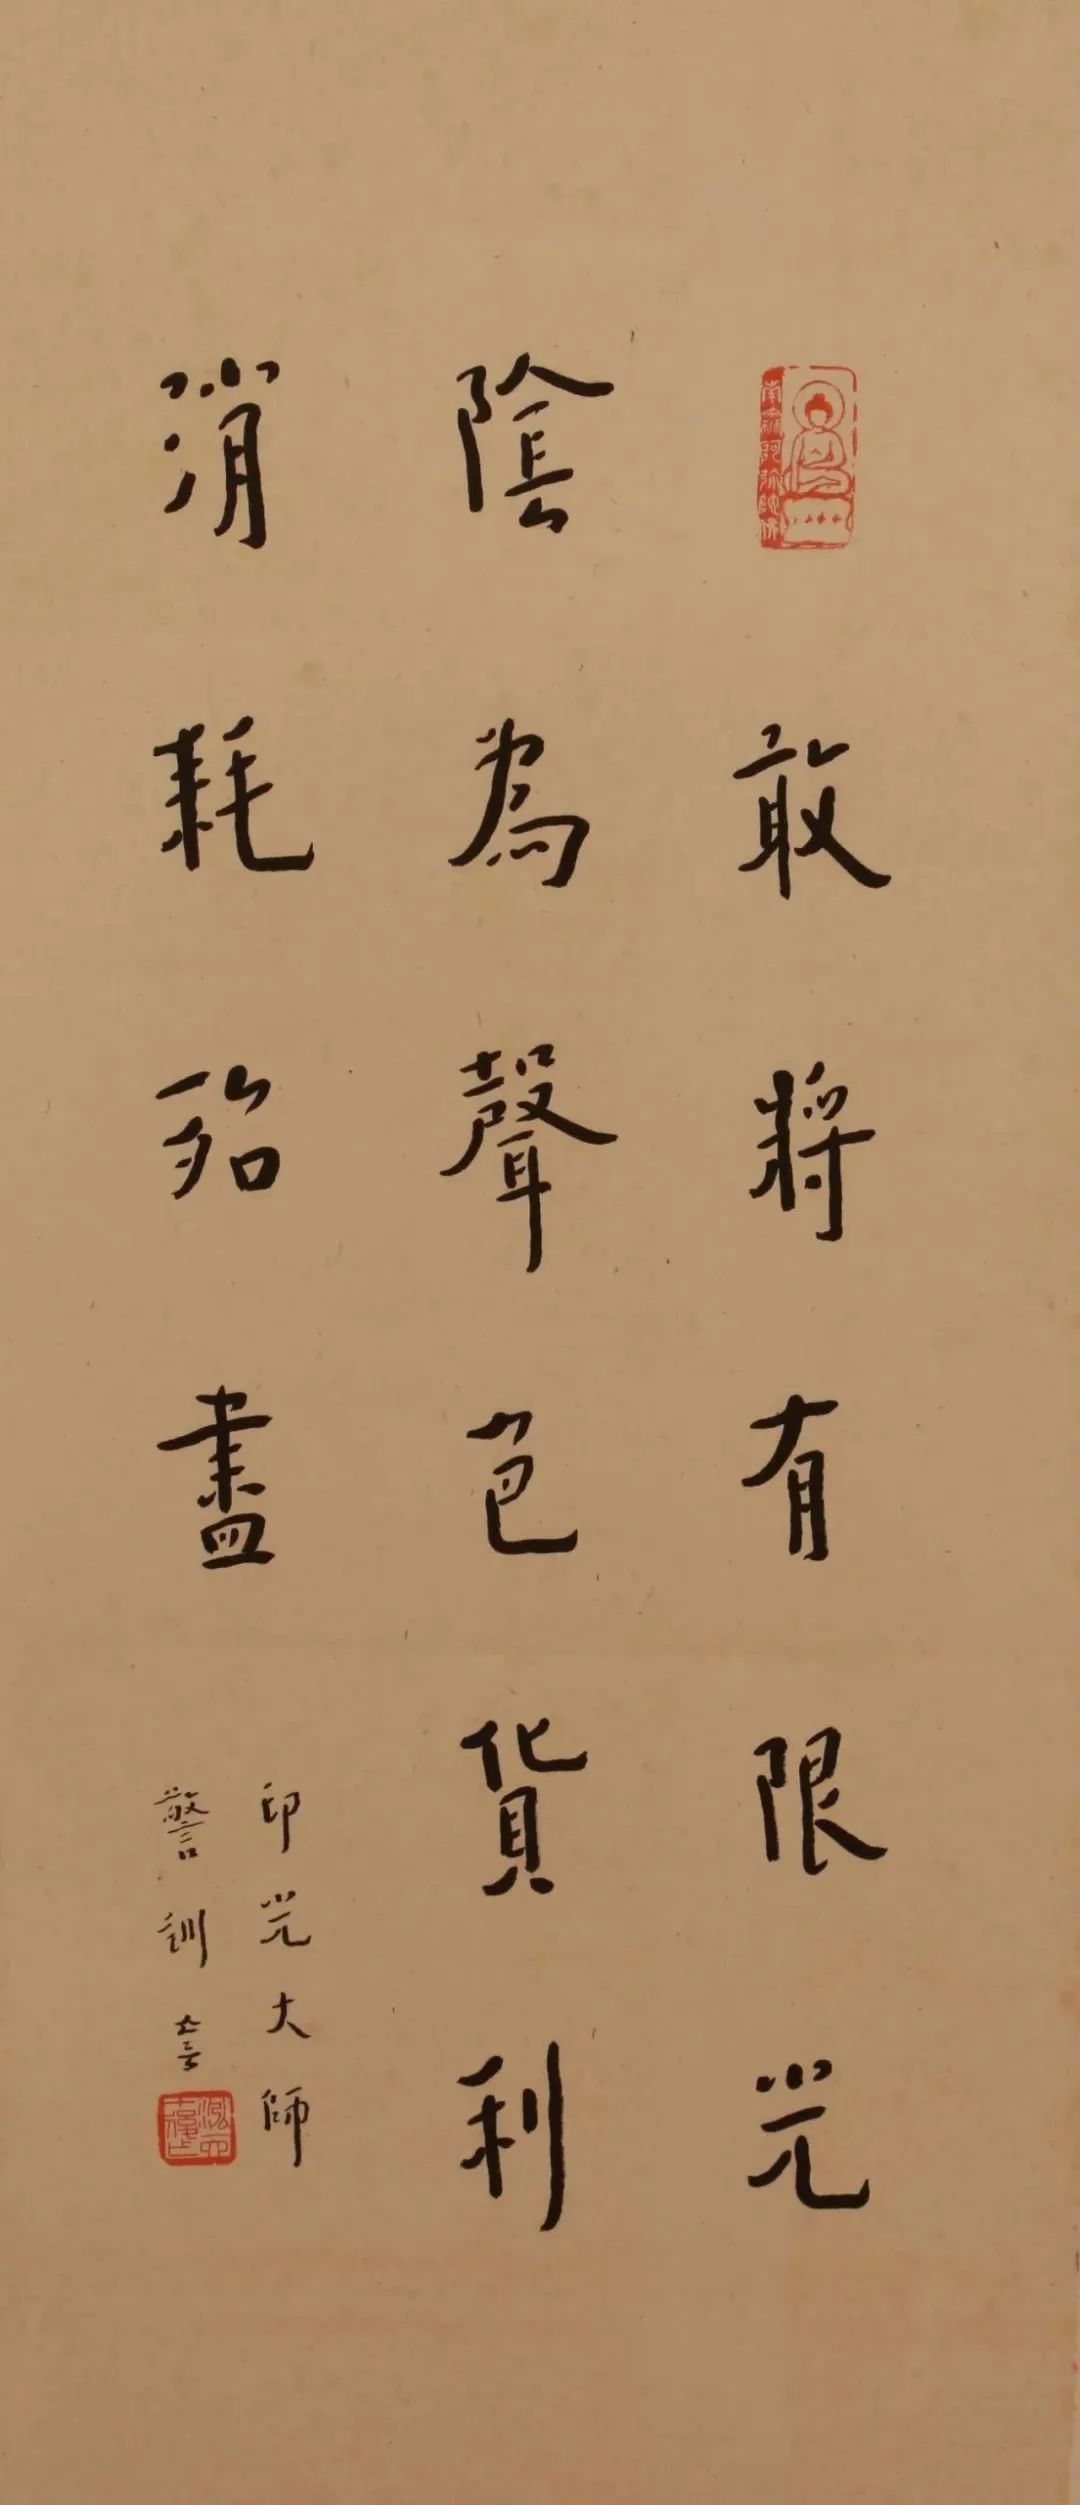 南無阿弥陀佛
敢將有限光
陰為聲色貨利
消耗殆盡
印光大師
警訓 音